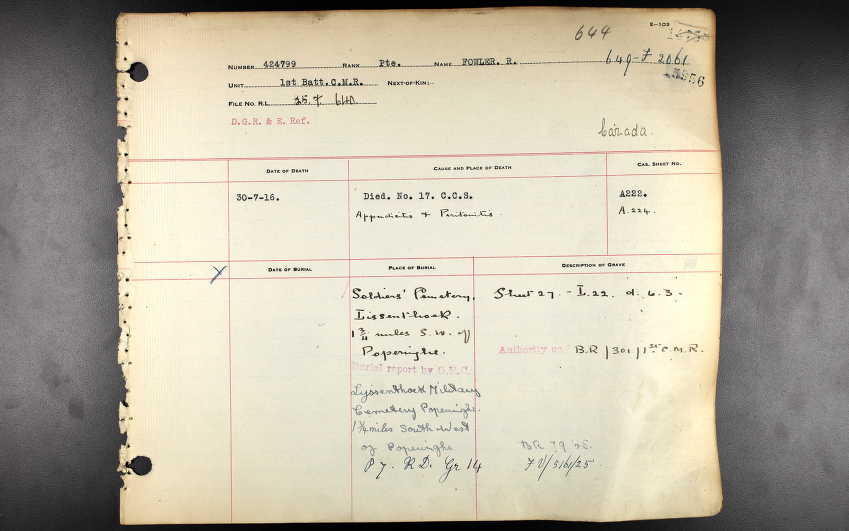 644 E-103
NUMBER 424799 RANK Pte. NAME FOWLER. R. 649-F 2061
UNIT 1st Batt.C.M.R. NEXT-OF-KIN:-
FILE NO. R.L. 25. F. 640.
D.G.R. & E. Ref.
Canada.
DATE OF DEATH CAUSE AND PLACE OF DEATH CAS. SHEET NO.
30-7-16. Died. No. 17. C.C.S. A222.
Appendicitis + Peritonitis A.224.
DATE OF BURIAL PLACE OF BURIAL DESCRIPTION OF GRAVE
Soldiers' Cemetery, Sheet 27 - L.22. d. 6.3.
Lissenthoek.
1 3/4 miles S.W. of
Poperinghe. Authority B.R/301/1st C.M.R.
Burial report by D.N.C.
Lyssenthoek Military
Cemetery Poperinghe.
1 3/4 miles South-West
of Poperinghe
P 7. R D. Gr 14 7 V/5161/25